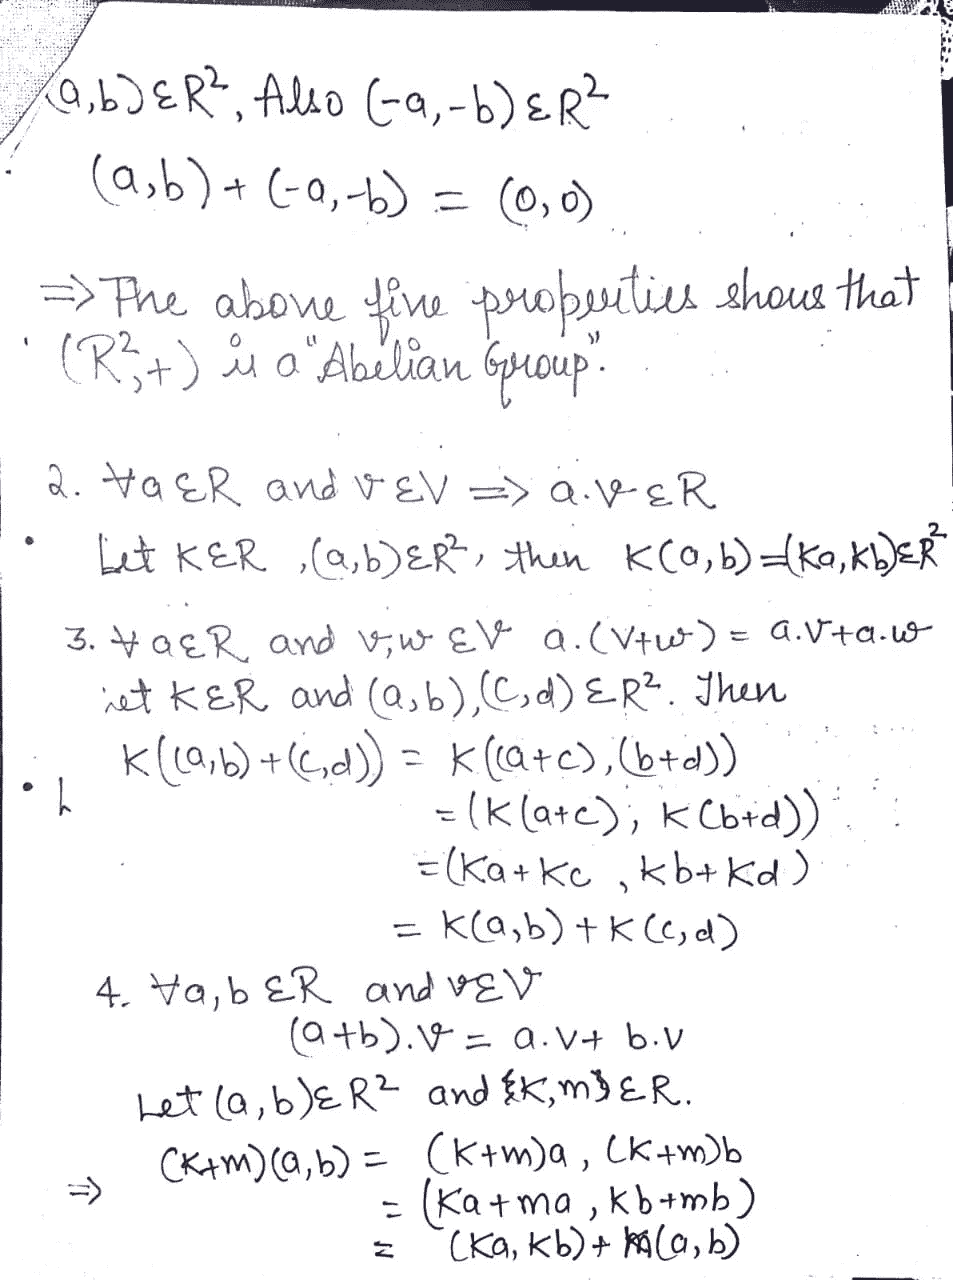 (a,b) ε R², Also (-a,-b) ε R²
(a,b) + (-a,-b) = (0,0)
=> The above five properties shows that
(R²,+) is a "Abelian Group".
2. ∀a εR and v εV => a.v εR
Let K εR , (a,b) εR², then K(a,b) = (Ka,Kb) εR²
3. ∀ a εR and v,w εV a.(v+w) = a.v+a.w
Let K εR and (a,b),(c,d) εR². Then
K((a,b)+(c,d)) = K((a+c),(b+d))
= (K(a+c), K(b+d))
= (Ka+Kc , Kb+Kd)
= K(a,b) + K(c,d)
4. ∀a,b εR and vεV
(a+b).v = a.v+ b.v
Let (a,b) ε R² and {K,m} εR.
=> (K+m)(a,b) = (K+m)a , (K+m)b
= (Ka+ma , Kb+mb)
= (Ka, Kb) + m(a,b)